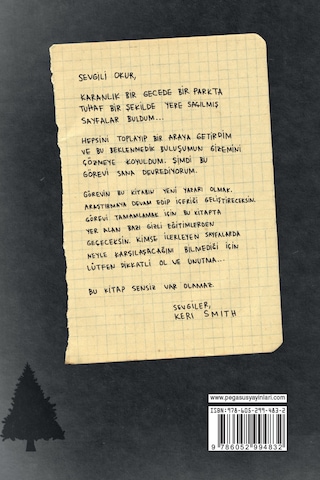 SEVGİLİ OKUR,
KARANLIK BİR GECEDE BİR PARKTA
TUHAF BİR ŞEKİLDE YERE SAÇILMIŞ
SAYFALAR BULDUM...
HEPSİNİ TOPLAYIP BİR ARAYA GETİRDİM
VE BU BEKLENMEDİK BULUŞUMUN GİZEMİNİ
ÇÖZMEYE KOYULDUM. ŞİMDİ BU
GÖREVİ SANA DEVREDİYORUM.
GÖREVİN BU KİTABIN YENİ YAZARI OLMAK.
ARAŞTIRMAYA DEVAM EDİP İÇERİĞİ GELİŞTİRECEKSİN.
GÖREVİ TAMAMLAMAK İÇİN BU KİTAPTA
YER ALAN BAZI GİZLİ EĞİTİMLERDEN
GEÇECEKSİN. KİMSE İLERLEYEN SAYFALARDA
NEYLE KARŞILAŞACAĞINI BİLMEDİĞİ İÇİN
LÜTFEN DİKKATLİ OL VE UNUTMA...
BU KİTAP SENSİZ VAR OLAMAZ.
SEVGİLER,
KERI SMITH
www.pegasusyayinlari.com
ISBN: 978-605-299-483-2
9 786052 994832